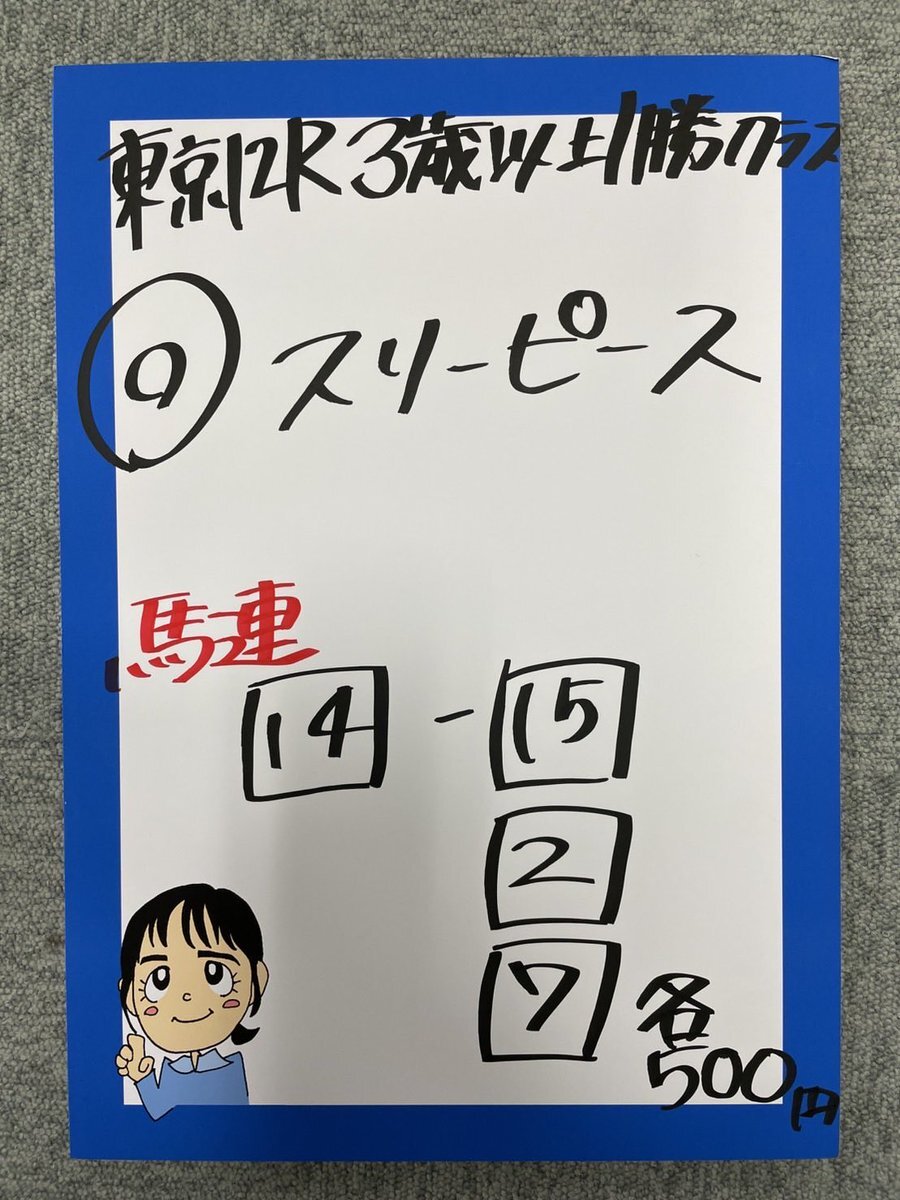 東京12R 3歳以上1勝クラス
⑨ スリーピース
馬連
14 - 15
2
7
各
500円